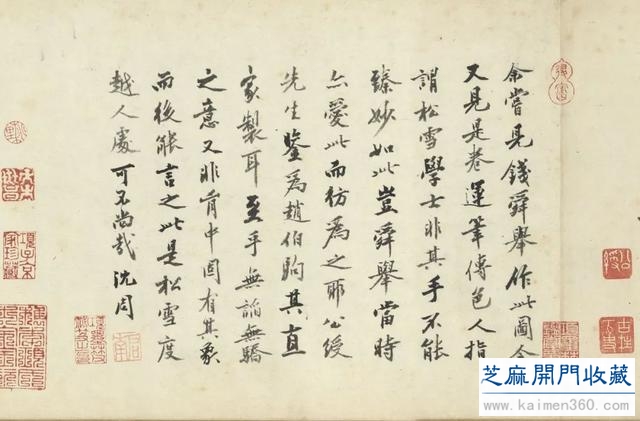 余嘗見錢舜舉作此圖今
又見是卷運筆傅色人指
謂松雪學士非其手不能
臻妙如此豈舜舉當時
亦愛此而彷為之耶公綬
先生鑒為趙伯駒其直
家製耳至乎無諂無驕
之意又非胷中固有其
而後能言之此是松雪度
越人處可不尚哉沈周
啟南
項子京家珍藏
公綬
芝麻開門收藏
www.kaimen360.com